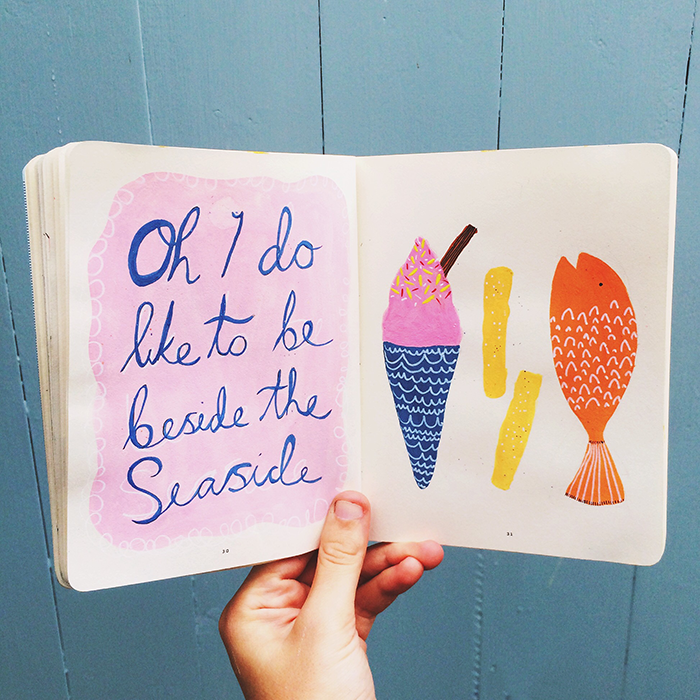 Oh I do
like to be
beside the
Seaside
30
31